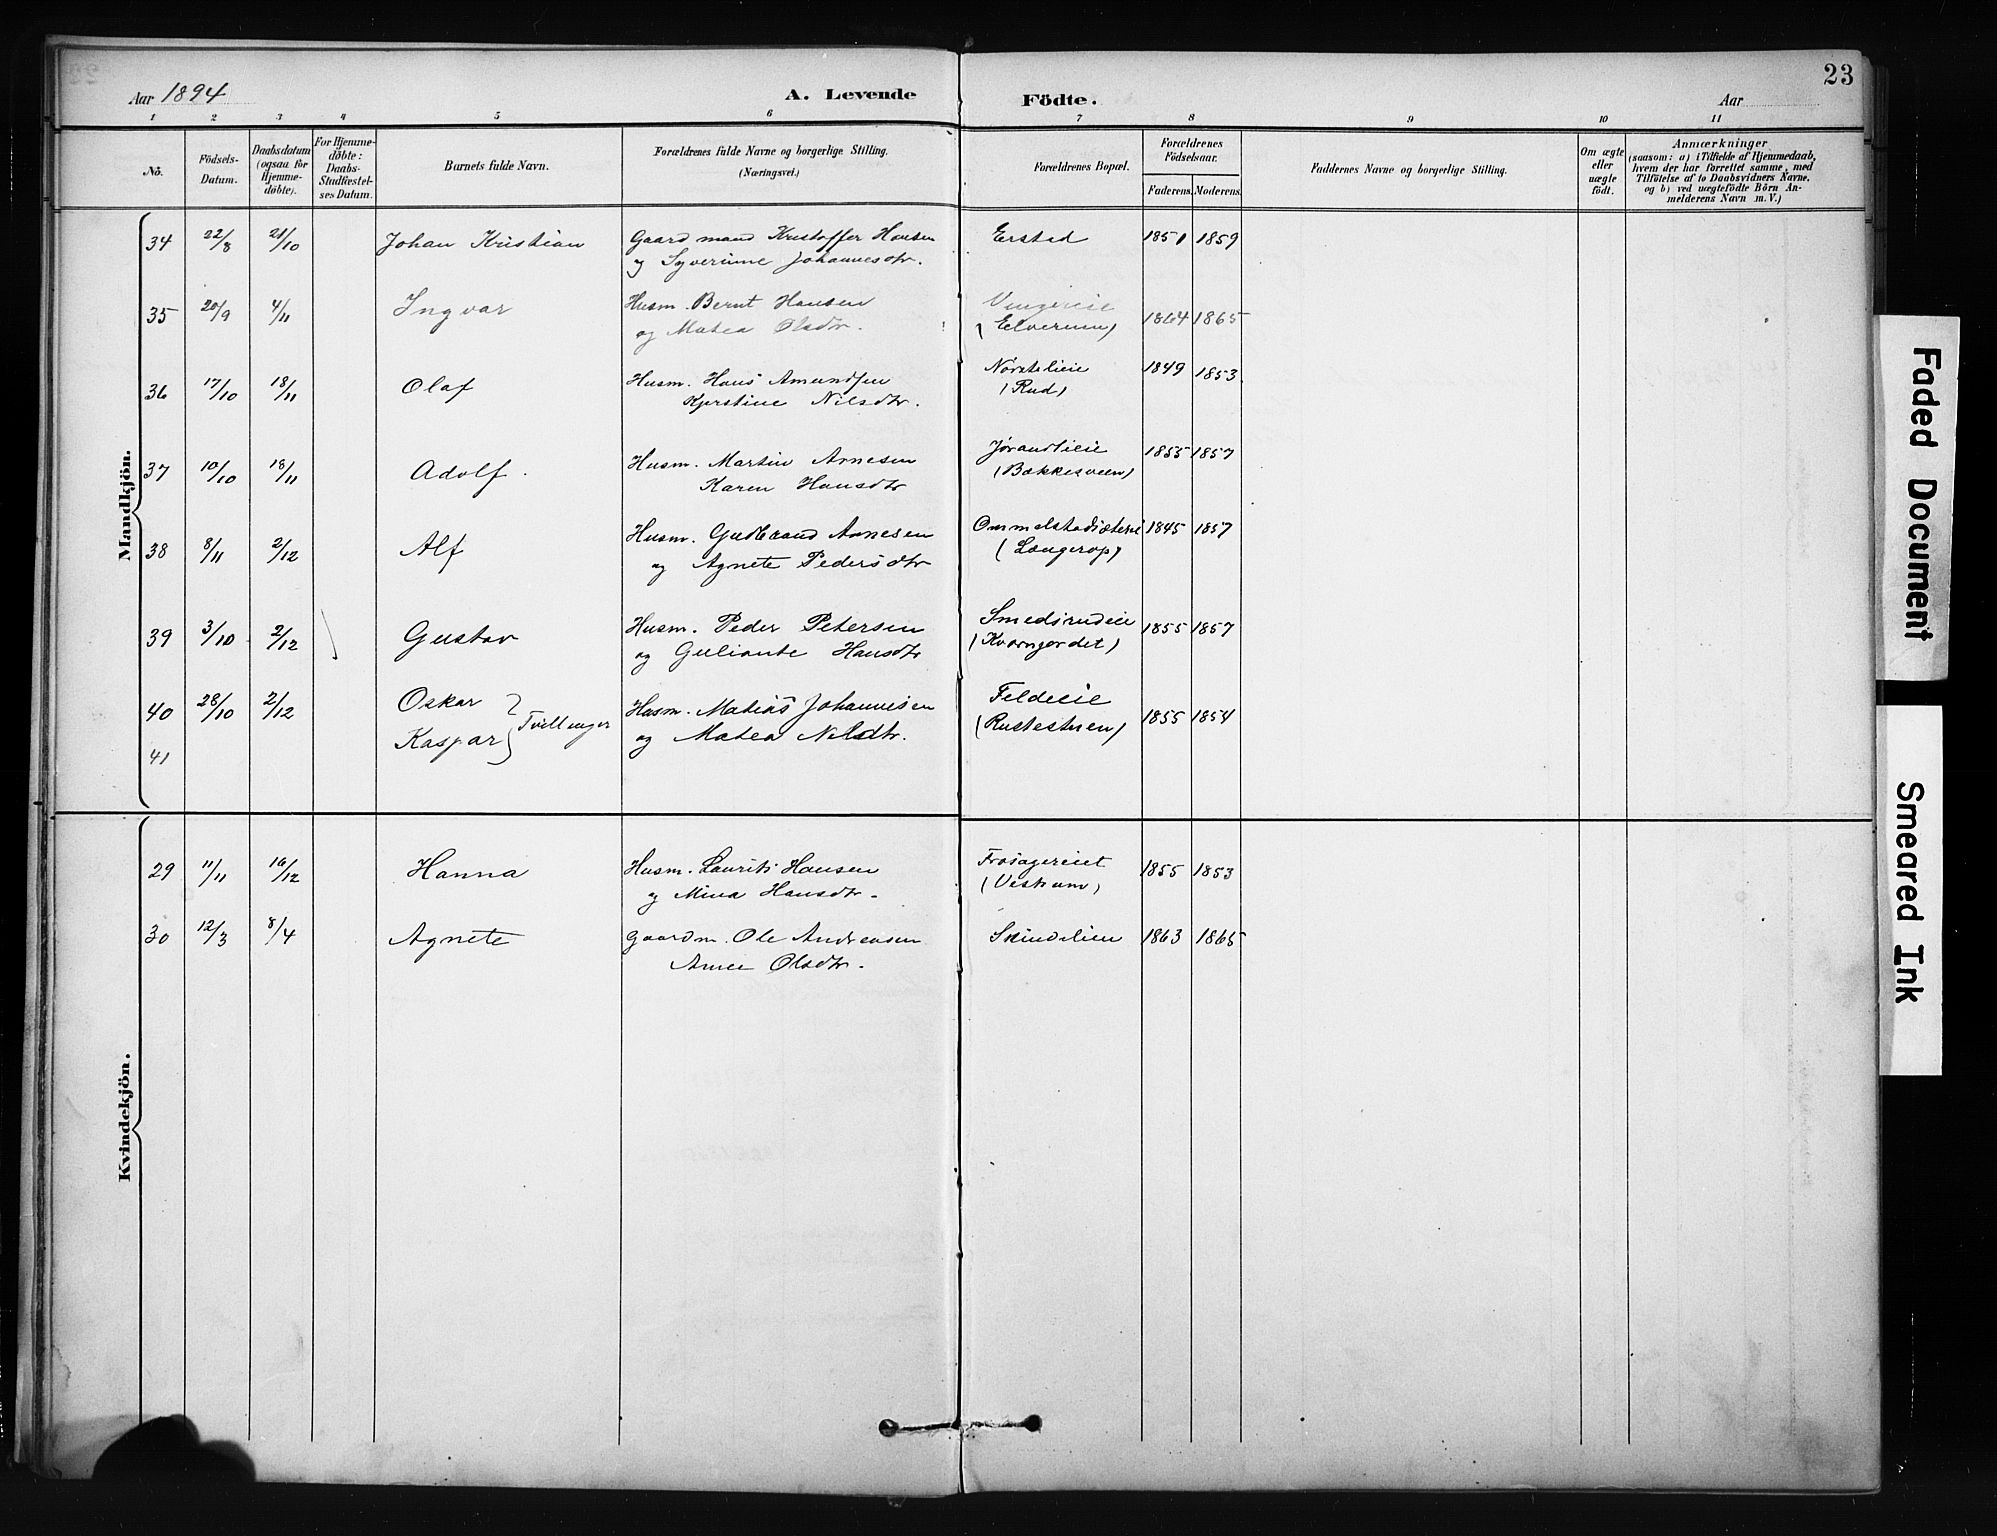 23
Aar 1894 A. Levende Födte. Aar
1 2 3 4 5 6 7 8 9 10 11
No. Födsels-Datum. Daabsdatum (ogsaa for Hjemme-döbte). For Hjemme-döbte: Daabs-Stadfæstel-ses Datum. Barnets fulde Navn. Forældrenes fulde Navne og borgerlige Stilling. (Næringsvei.) Forældrenes Bopæl. Forældrenes Födselsaar. Faderens. Moderens. Faddernes Navne og borgerlige Stilling. Om ægte eller uægte födt. Anmærkninger (saasom: a) i Tilfælde af Hjemmedaab, hvem der har forrettet samme, med Tilföielse af to Daabsvidners Navne, og b) ved uægtefödte Börn An-melderens Navn m. V.)
Mandkjön.
34 22/8 21/10 Johan Kristian Gaardmand Kristoffer Hansen Erstad 1851 1859
og Syverine Johannesdtr.
35 20/9 4/11 Ingvar Husm. Bernt Hansen 1864 1865
og Matea Olsdtr. (Elverum)
36 17/10 18/11 Olaf Husm. Hans Amundsen Nørstelieie 1849 1853
Kjerstine Nilsdtr. (Rud)
37 10/10 18/11 Adolf. Husm. Martin Arnesen Jørandlieie 1855 1857
Karen Hansdtr (Bakkesveen)
38 8/11 2/12 Alf Husm. Gudbrand Arnesen 1845 1857
og Agnete Pedersdtr (Langerop)
39 3/10 2/12 Gustav Husm. Peder Petersen Smedsrudeie 1855 1857
og Guliante Hansdtr (Kvarngordet)
40 28/10 2/12 Oskar Husm. Matias Johannesen Feldeie 1855 1854
41 Kaspar Tvillinger og Matea Nilsdtr. (Rustestuen)
Kvindekjön.
29 11/11 16/12 Hanna Husm. Laurits Hansen Frosagereiet 1855 1853
og Mina Hansdtr. (Vestrum)
30 12/3 8/4 Agnete Gaardm. Ole Andreasen Skindelien 1863 1865
Anne Olsdtr.
Faded Document
Smeared Ink